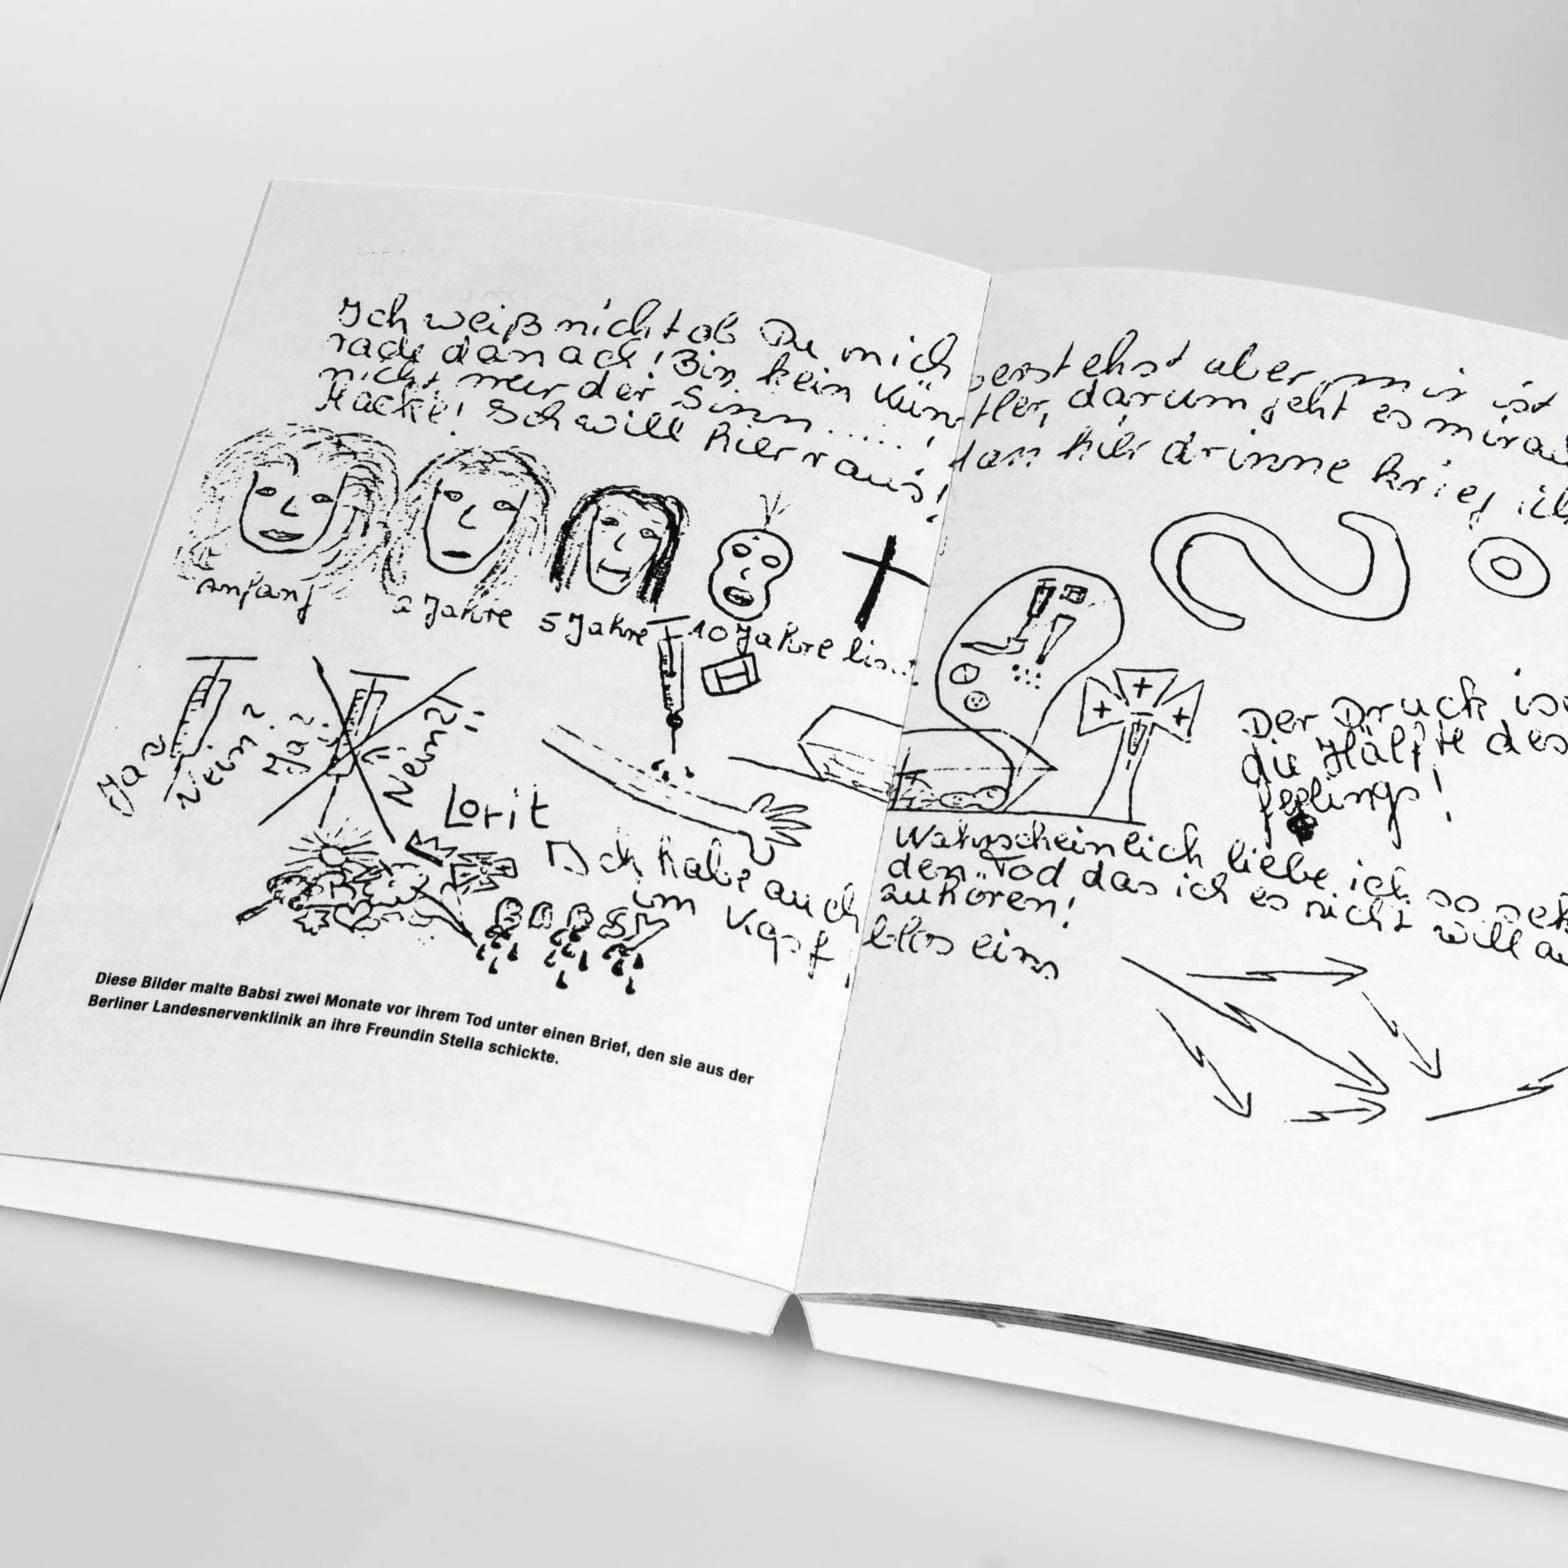 Ich weiß nicht ob Du mich verstehst aber mir ist
rade danach! Bin kein Künstler, darum geht es mir
nicht, nur der Sinn......!
Hacke! Ich will hier raus! hier drinne krieg ich
Anfang
2 Jahre
5 Jahre
10 Jahre
bis...
Ja?
Nein?
Ja?
Nein?
Der Druck ist
die Hälfte des
feelings!
Lorit
Ich habe auch
im Kopf, blos eins
BABSI
Wahrscheinlich liebe ich so
den Tod das ich es nicht will
auhören!
Diese Bilder malte Babsi zwei Monate vor ihrem Tod unter einen Brief, den sie aus der
Berliner Landesnervenklinik an ihre Freundin Stella schickte.